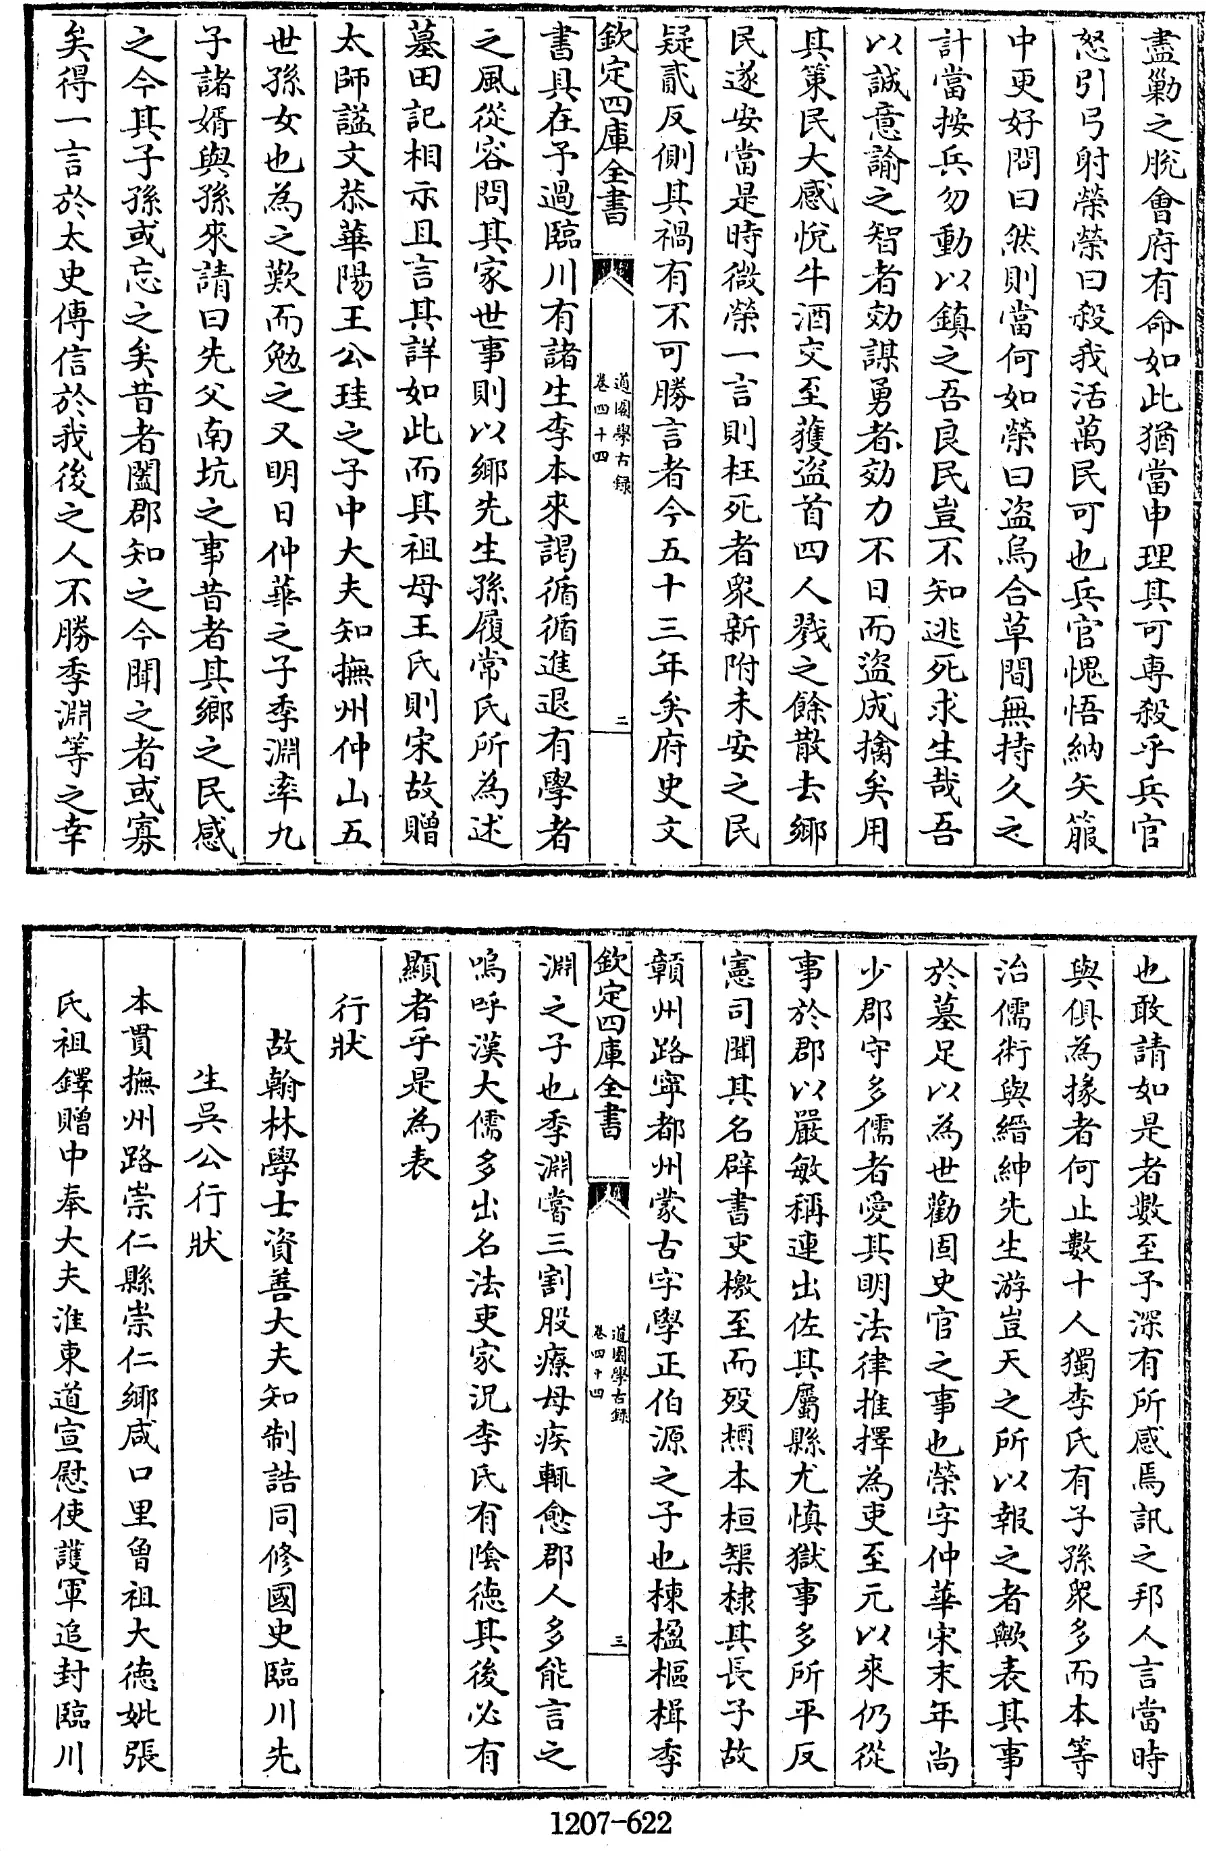 盡勦之脫會府有命如此猶當申理其可專殺乎兵官
怒引弓射榮榮曰殺我活萬民可也兵官愧悟納矢箙
中更好問曰然則當何如榮曰盜烏合草間無持久之
計當按兵勿動以鎮之吾良民豈不知逃死求生哉吾
以誠意諭之智者効謀勇者効力不日而盜成擒矣用
其策民大感悅牛酒交至獲盜首四人戮之餘散去鄉
民遂安當是時微榮一言則枉死者衆新附未安之民
疑貳反側其禍有不可勝言者今五十三年矣府史文
欽定四庫全書
道園學古錄
卷四十四
二
書具在予過臨川有諸生李本來謁循循進退有學者
之風從容問其家世事則以鄉先生孫履常氏所為述
墓田記相示且言其詳如此而其祖母王氏則宋故贈
太師諡文恭華陽王公珪之子中大夫知撫州仲山五
世孫女也為之歎而勉之又明日仲華之子季淵率九
子諸婿與孫來請曰先父南坑之事昔者其鄉之民感
之今其子孫或忘之矣昔者闔郡知之今聞之者或寡
矣得一言於太史傳信於我後之人不勝季淵等之幸
也敢請如是者數至予深有所感焉訊之邦人言當時
與俱為掾者何止數十人獨李氏有子孫衆多而本等
治儒術與縉紳先生游豈天之所以報之者歟表其事
於墓足以為世勸固史官之事也榮字仲華宋末年尚
少郡守多儒者愛其明法律推擇為吏至元以來仍從
事於郡以嚴敏稱連出佐其屬縣尤慎獄事多所平反
憲司聞其名辟書吏檄至而歿槚本桓榘棣其長子故
贛州路寧都州蒙古字學正伯源之子也棟楹樞楫季
欽定四庫全書
道園學古錄
卷四十四
三
淵之子也季淵嘗三割股療母疾輒愈郡人多能言之
嗚呼漢大儒多出名法吏家況李氏有陰德其後必有
顯者乎是為表
行狀
故翰林學士資善大夫知制誥同修國史臨川先
生吳公行狀
本貫撫州路崇仁縣崇仁鄉咸口里曾祖大德妣張
氏祖鐸贈中奉大夫淮東道宣慰使護軍追封臨川
1207-622